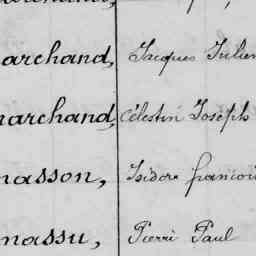 archand, Jacques Julien
narchand, Célestin Joseph
nasson, Isidore francoi
nassu, Pierri Paul